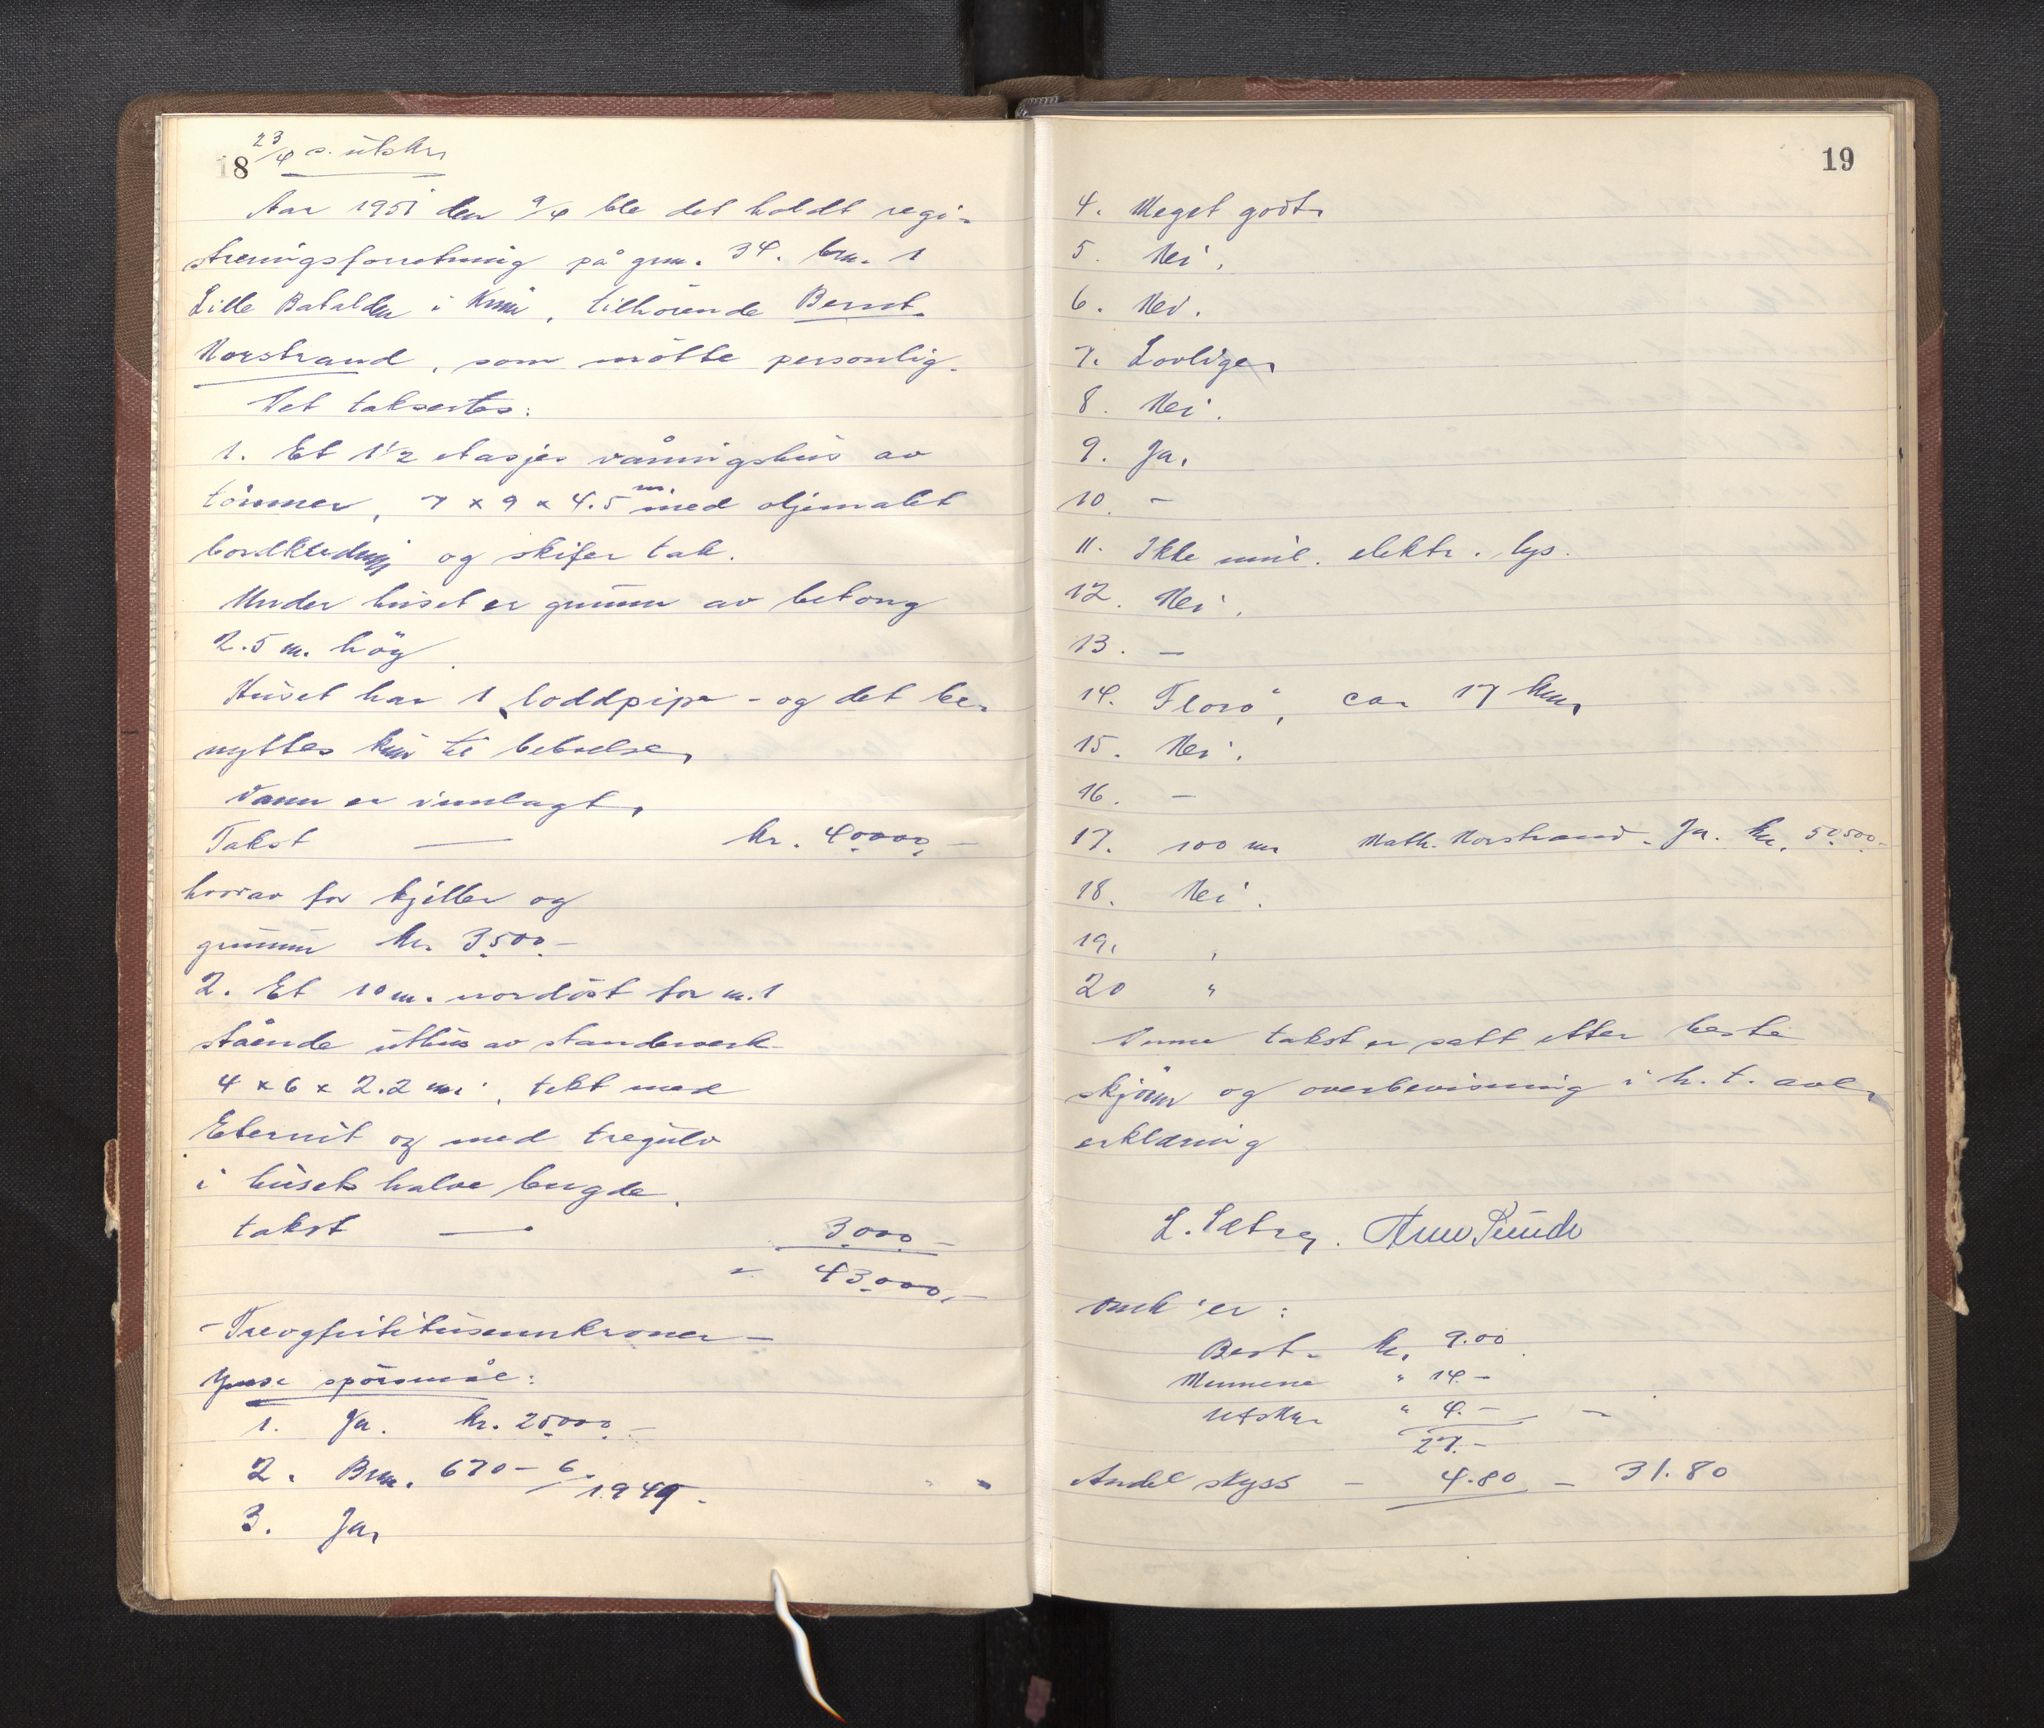 18 23/4 s. utskr.
Aar 1951 den 9/4 ble det holdt regi-
streringsforretning på gnr. 34. brn. 1
Lille Batalden i Kinn, tilhörende Bernt
Norstrand, som mötte personlig.
Det takseres:
1. Et 1 1/2 etasjes våningshus av
tömmer, 7 x 9 x 4.5 m. med oljemalet
bordkledning og skifer tak.
Under huset er grunnmur av betong
2.5 m. höy.
Huset har 1 loddpipe - og det be-
nyttes kun til beboelse,
Vann er innlagt,
Takst — kr. 40000,-
hvorav for kjeller og
grunnmur kr. 3500.-
2. Et 10 m. nordöst for nr. 1
stående uthus av standerverk
4 x 6 x 2.2 m, tekt med
Eternit og med tregulv
i husets halve lengde.
takst — 3000.-
" 43.000,-
- Treogfirtitusennkroner -
Ymse spörsmål:
1. Ja. kr. 25000.-
2. Brn. 670 - 6/ 1949.
3. Ja,
19
4. Meget godt.
5. Nei.
6. Nei.
7. Lovlige.
8. Nei.
9. Ja.
10. -
11. Ikke innl. elektr. lys.
12. Nei.
13. -
14. Florö, ca. 17 km,
15. Nei.
16. -
17. 100 m Math. Norstrand. Ja. kr. 50.500.-
18. Nei.
19. "
20 "
Denne takst er satt etter beste
skjönn og overbevisning i h. t. avl.
erklæring
L. Sætre. Arne Sunde
Omk'er:
Best. kr. 9.00
Mennene " 14.-
Utskr. " 4.- -
27.-
Andel skyss - 4.80 - 31.80